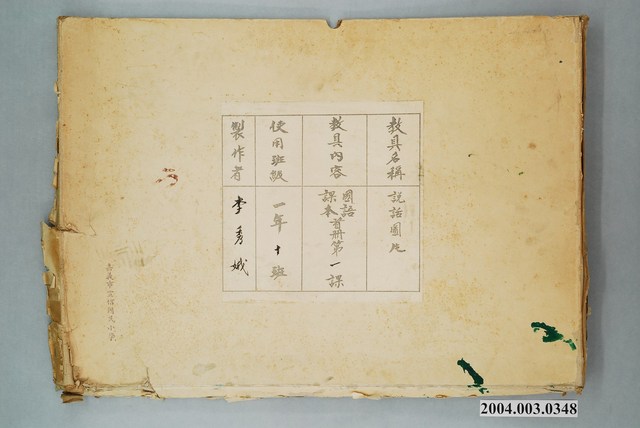 教具名稱
說話圖片
教具內容
國語
課本首册第一課
使用班級
一年十班
製作者
李秀娥
2004.003.0348